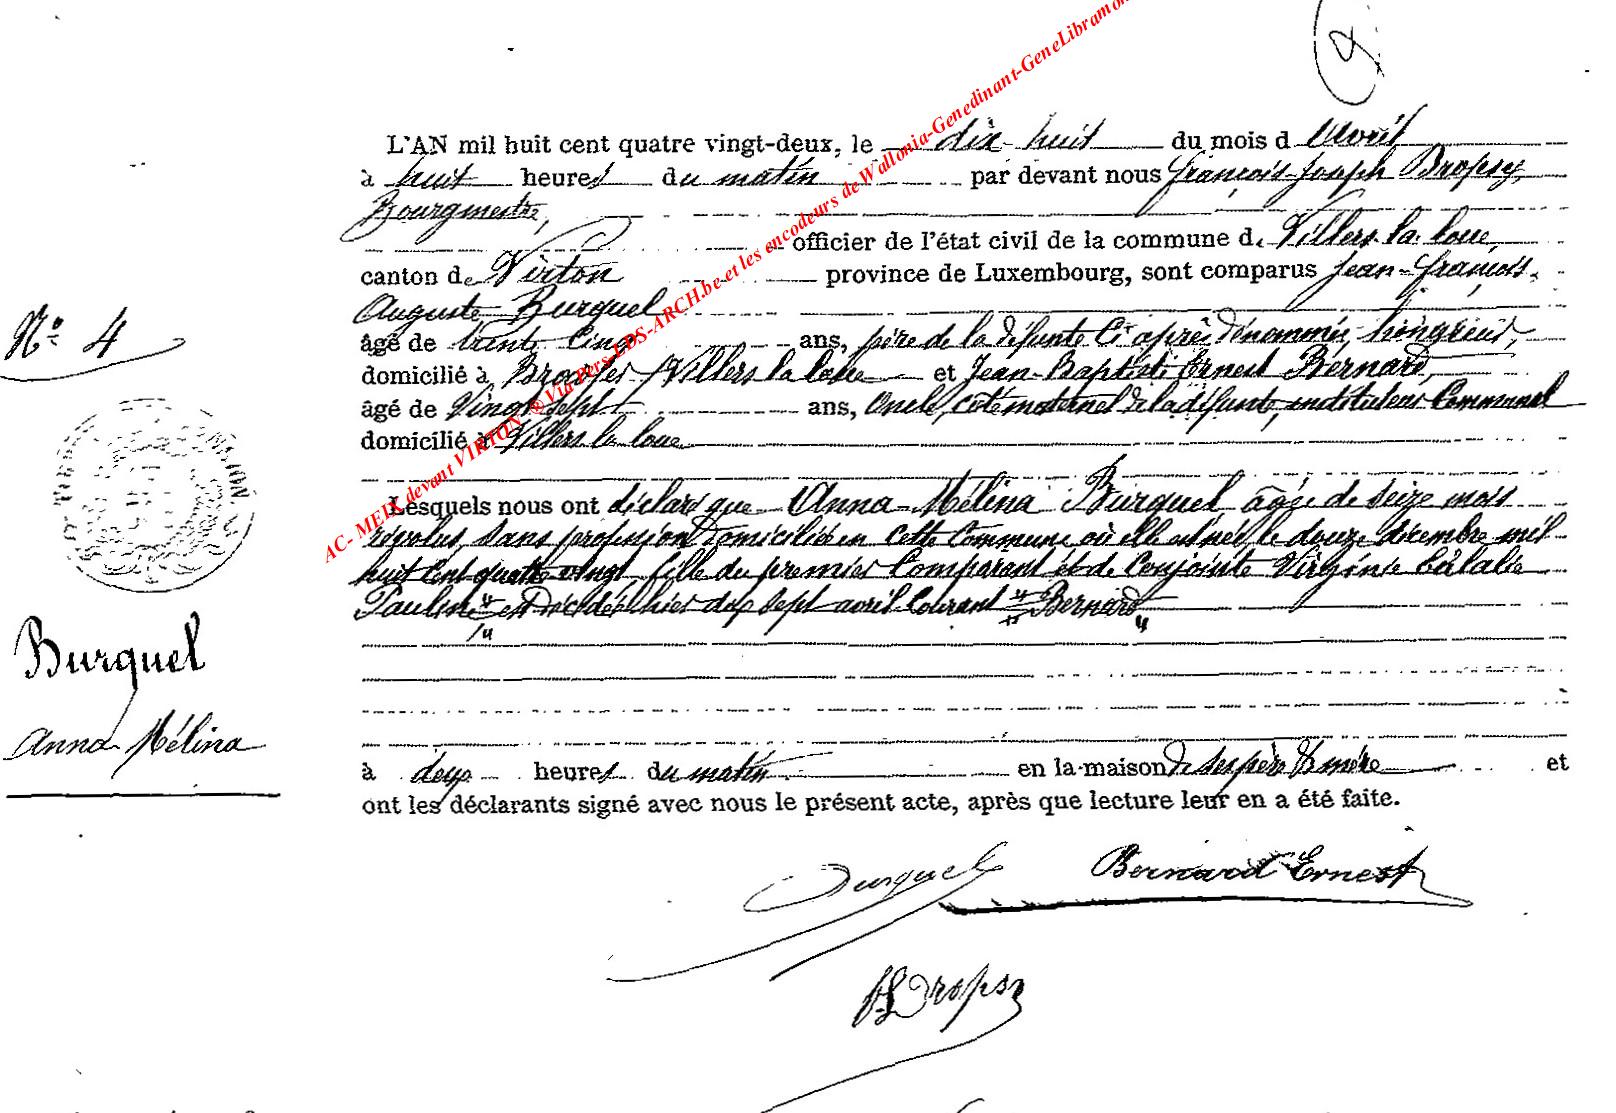 L'AN mil huit cent quatre vingt-deux, le dix-huit du mois d'Avril
à huit heures du matin par devant nous François-Joseph Dropsy,
Bourgmestre,
officier de l'état civil de la commune de Villers la loue,
canton de Virton province de Luxembourg, sont comparus Jean-François-
Auguste Burquel
âgé de trente cinq ans, père de la défunte ci après dénommée, hongreur,
domicilié à Villers la loue et Jean-Baptiste Ernest Bernard,
âgé de vingt sept ans, Oncle, côté maternel de la défunte, instituteur Communal
domicilié à Villers la loue
Lesquels nous ont déclaré que Anna Mélina Burquel âgée de seize mois
révolus, sans profession domiciliée en cette commune, où elle est née, le douze décembre mil
huit cent quatre vingt fille du premier Comparant et de conjointe Virginie Eulalie
Pauline est décédée hier dix sept avril courant Bernard
à deux heures du matin en la maison de ses père & mère et
ont les déclarants signé avec nous le présent acte, après que lecture leur en a été faite.
Burquel Bernard Ernest
Dropsy
N° 4
Burquel
Anna Mélina
AC- MEIX devant VIRTON ® Via Pers-LDS-ARCH.be et les encodeurs de Wallonia-Genedinant-GeneLibramon